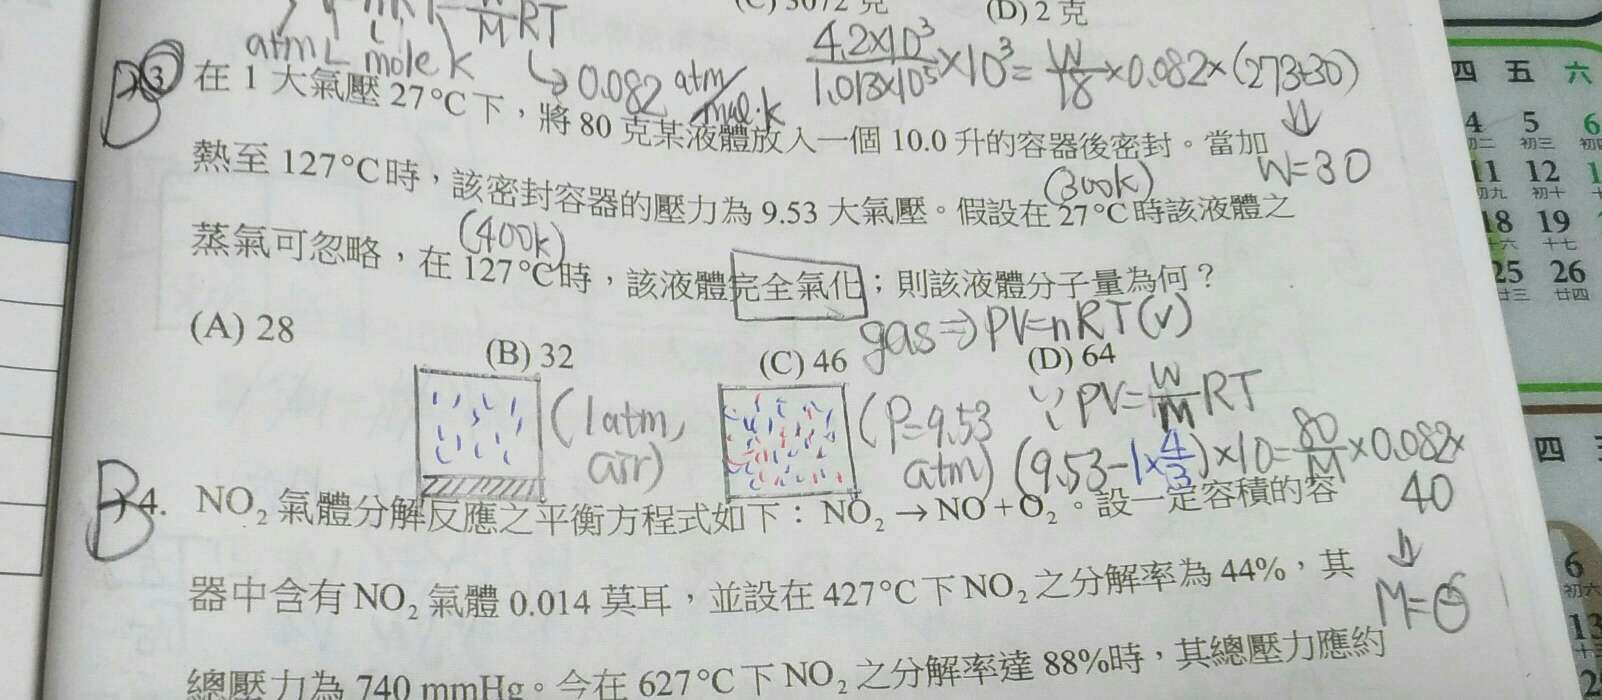 RT
M
(D) 2 克
atm L mole k
0.082 atm/mol·k
4.2×10³/1.013×10⁵×10³=W/18×0.082×(273+30)
W=30
B 3 在 1 大氣壓 27°C下，將 80 克某液體放入一個 10.0 升的容器後密封。當加
熱至 127°C時，該密封容器的壓力為 9.53 大氣壓。假設在 27°C時該液體之
(300k)
蒸氣可忽略，在 127°C時，該液體完全氣化；則該液體分子量為何？
(400k)
(A) 28 (B) 32 (C) 46 (D) 64
gas⇒PV=nRT(v)
(1atm, air)
(P=9.53 atm)
∵PV=W/M RT
(9.53-1×4/3)×10=80/M×0.082×
40
B 4. NO₂ 氣體分解反應之平衡方程式如下：NO₂→NO+O₂。設一定容積的容
器中含有 NO₂ 氣體 0.014 莫耳，並設在 427°C下 NO₂ 之分解率為 44%，其
總壓力為 740 mmHg。今在 627°C下 NO₂ 之分解率達 88%時，其總壓力應約
四 五 六
4 5 6
初二 初三
11 12
初九 初十
18 19
十六 十七
25 26
廿三 廿四
四
6
初六
13